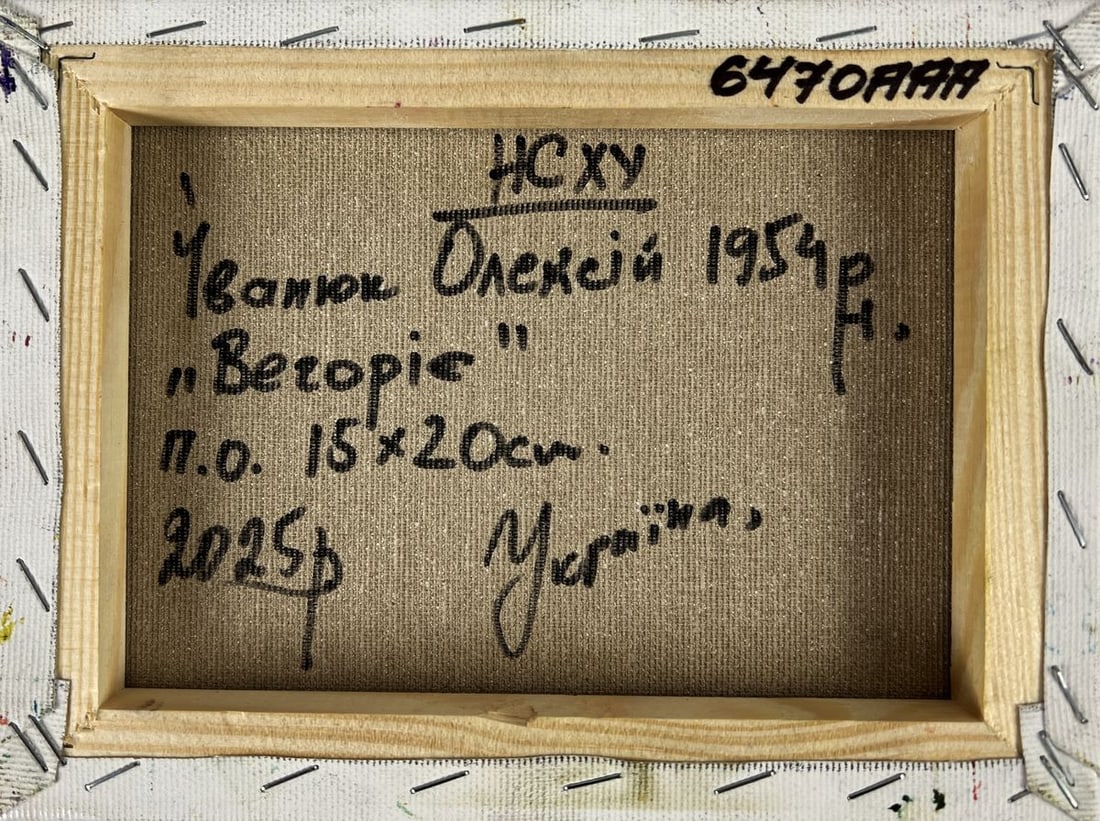 6470AAA
НСХУ
Іванюк Олексій 1954р.н.
„Вечоріє"
п.о. 15×20см.
2025р Україна,